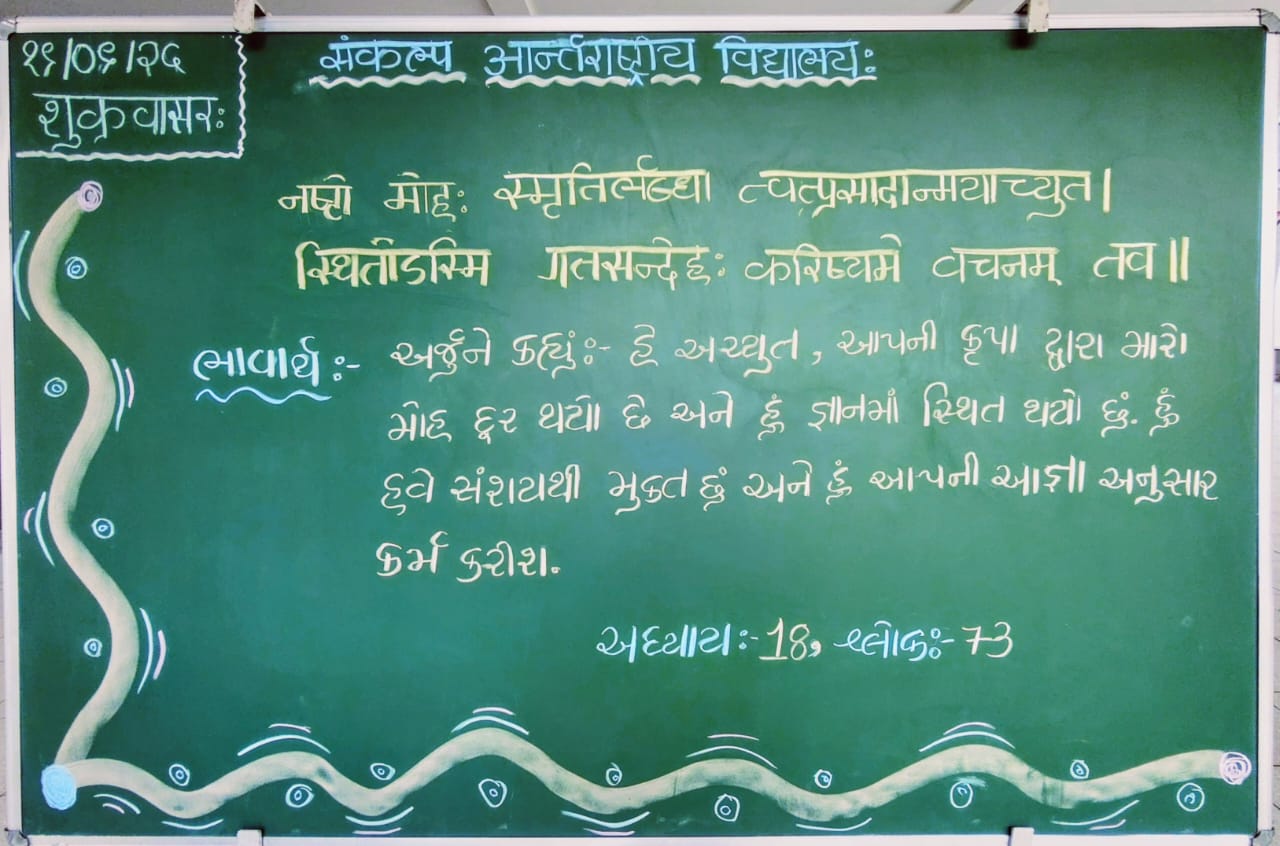 १९/०९/२५
शुक्रवासरः
संकल्प आर्न्तराष्ट्रीय विद्यालयः
नष्टो मोहः स्मृतिर्लब्धा त्वत्प्रसादान्मयाच्युत।
स्थितोऽस्मि गतसन्देहः करिष्यमे वचनम् तव॥
ભાવાર્થઃ- અર્જુને કહ્યુંઃ- હે અચ્યુત, આપની કૃપા દ્વારા મારો
મોહ દૂર થયો છે અને હું જ્ઞાનમાં સ્થિત થયો છું. હું
હવે સંશયથી મુક્ત છું અને હું આપની આજ્ઞા અનુસાર
કર્મ કરીશ.
અધ્યાયઃ- 18, શ્લોકઃ- 73